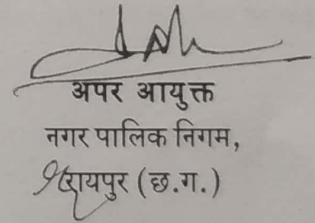 अपर आयुक्त
नगर पालिक निगम,
रायपुर (छ.ग.)